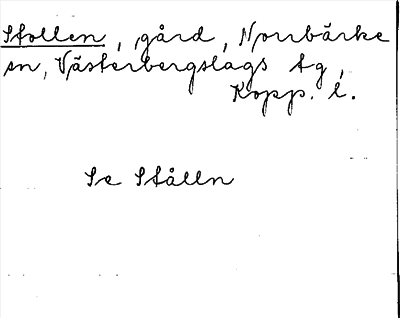 Stollen, gård, Norrbärke
sn, Västerbergslags tg,
Kopp. l.
Se Ställn